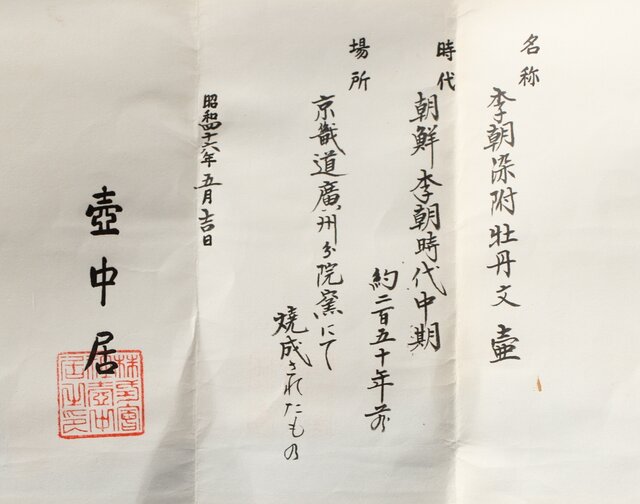 名称
李朝染附牡丹文壷
時代
朝鮮李朝時代中期
約二百五十年前
場所
京畿道廣州分院窯にて
焼成されたもの
昭和四十六年五月吉日
壺中居
株式會社壺中居之印